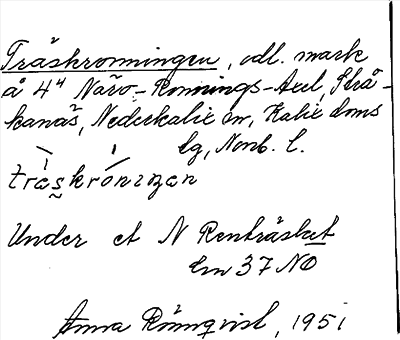 Träskronningen, odl. mark
å 4⁴ Näro-Ronnings-Axel, Strå-
kanäs, Nederkalix sn, Kalix doms
lg, Norrb. l.
träskrónıŋən
Under et N Renträsket
Lm 37 NO
Anna Rönnqvist, 1951